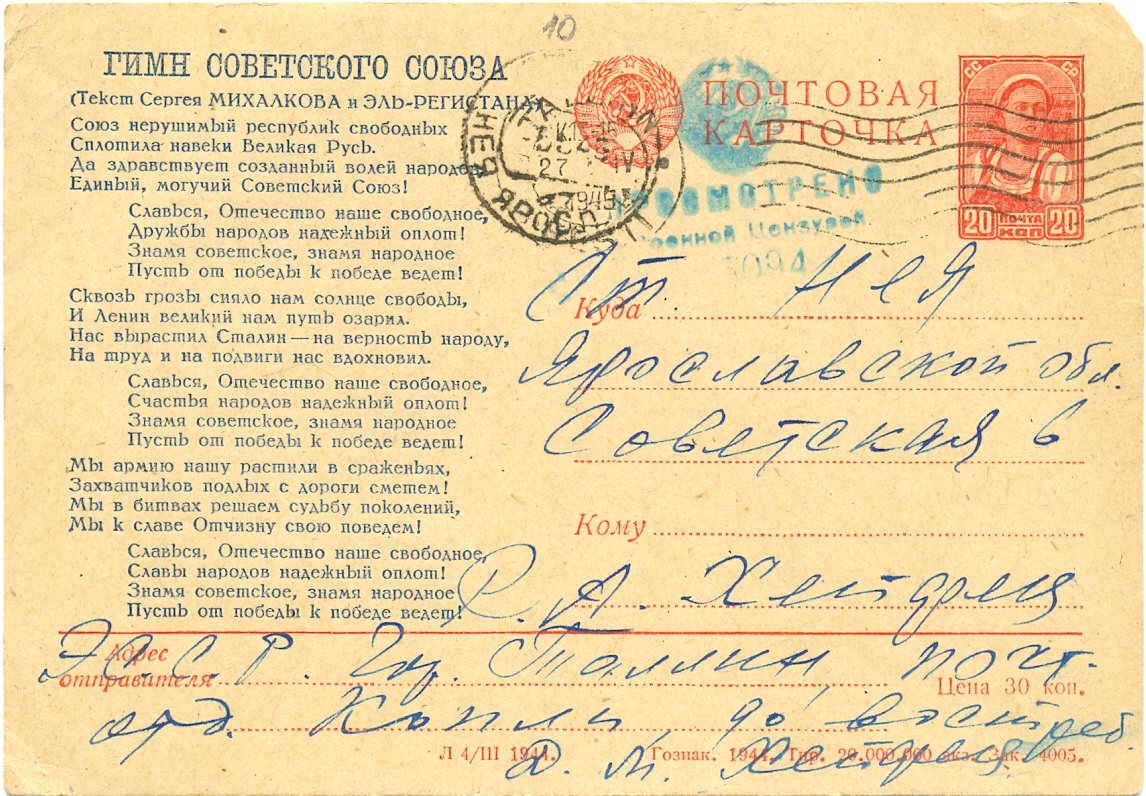 10
ГИМН СОВЕТСКОГО СОЮЗА
(Текст Сергея МИХАЛКОВА и ЭЛЬ-РЕГИСТАНА)
Союз нерушимый республик свободных
Сплотила навеки Великая Русь.
Да здравствует созданный волей народов
Единый, могучий Советский Союз!
Славься, Отечество наше свободное,
Дружбы народов надежный оплот!
Знамя советское, знамя народное
Пусть от победы к победе ведет!
Сквозь грозы сияло нам солнце свободы,
И Ленин великий нам путь озарил.
Нас вырастил Сталин — на верность народу,
На труд и на подвиги нас вдохновил.
Славься, Отечество наше свободное,
Счастья народов надежный оплот!
Знамя советское, знамя народное
Пусть от победы к победе ведет!
Мы армию нашу растили в сраженьях,
Захватчиков подлых с дороги сметем!
Мы в битвах решаем судьбу поколений,
Мы к славе Отчизну свою поведем!
Славься, Отечество наше свободное,
Славы народов надежный оплот!
Знамя советское, знамя народное
Пусть от победы к победе ведет!
ПОЧТОВАЯ
КАРТОЧКА
СС СР
20 ПОЧТА 20
КОП
НЕЯ ЯРОСЛ
27
1945
ПРОСМОТРЕНО
Военной Цензурой
Куда Ст. Нея
Ярославской обл.
Советская 6
Кому
Р. А.
Адрес
отправителя
Э.С.С.Р. Гор. Таллин почт.
отд. Копли до востреб.
Цена 30 коп.
Л 4/III 1944. Гознак. 1944. Тир. 20.000.000 экз. Зак. 4005.